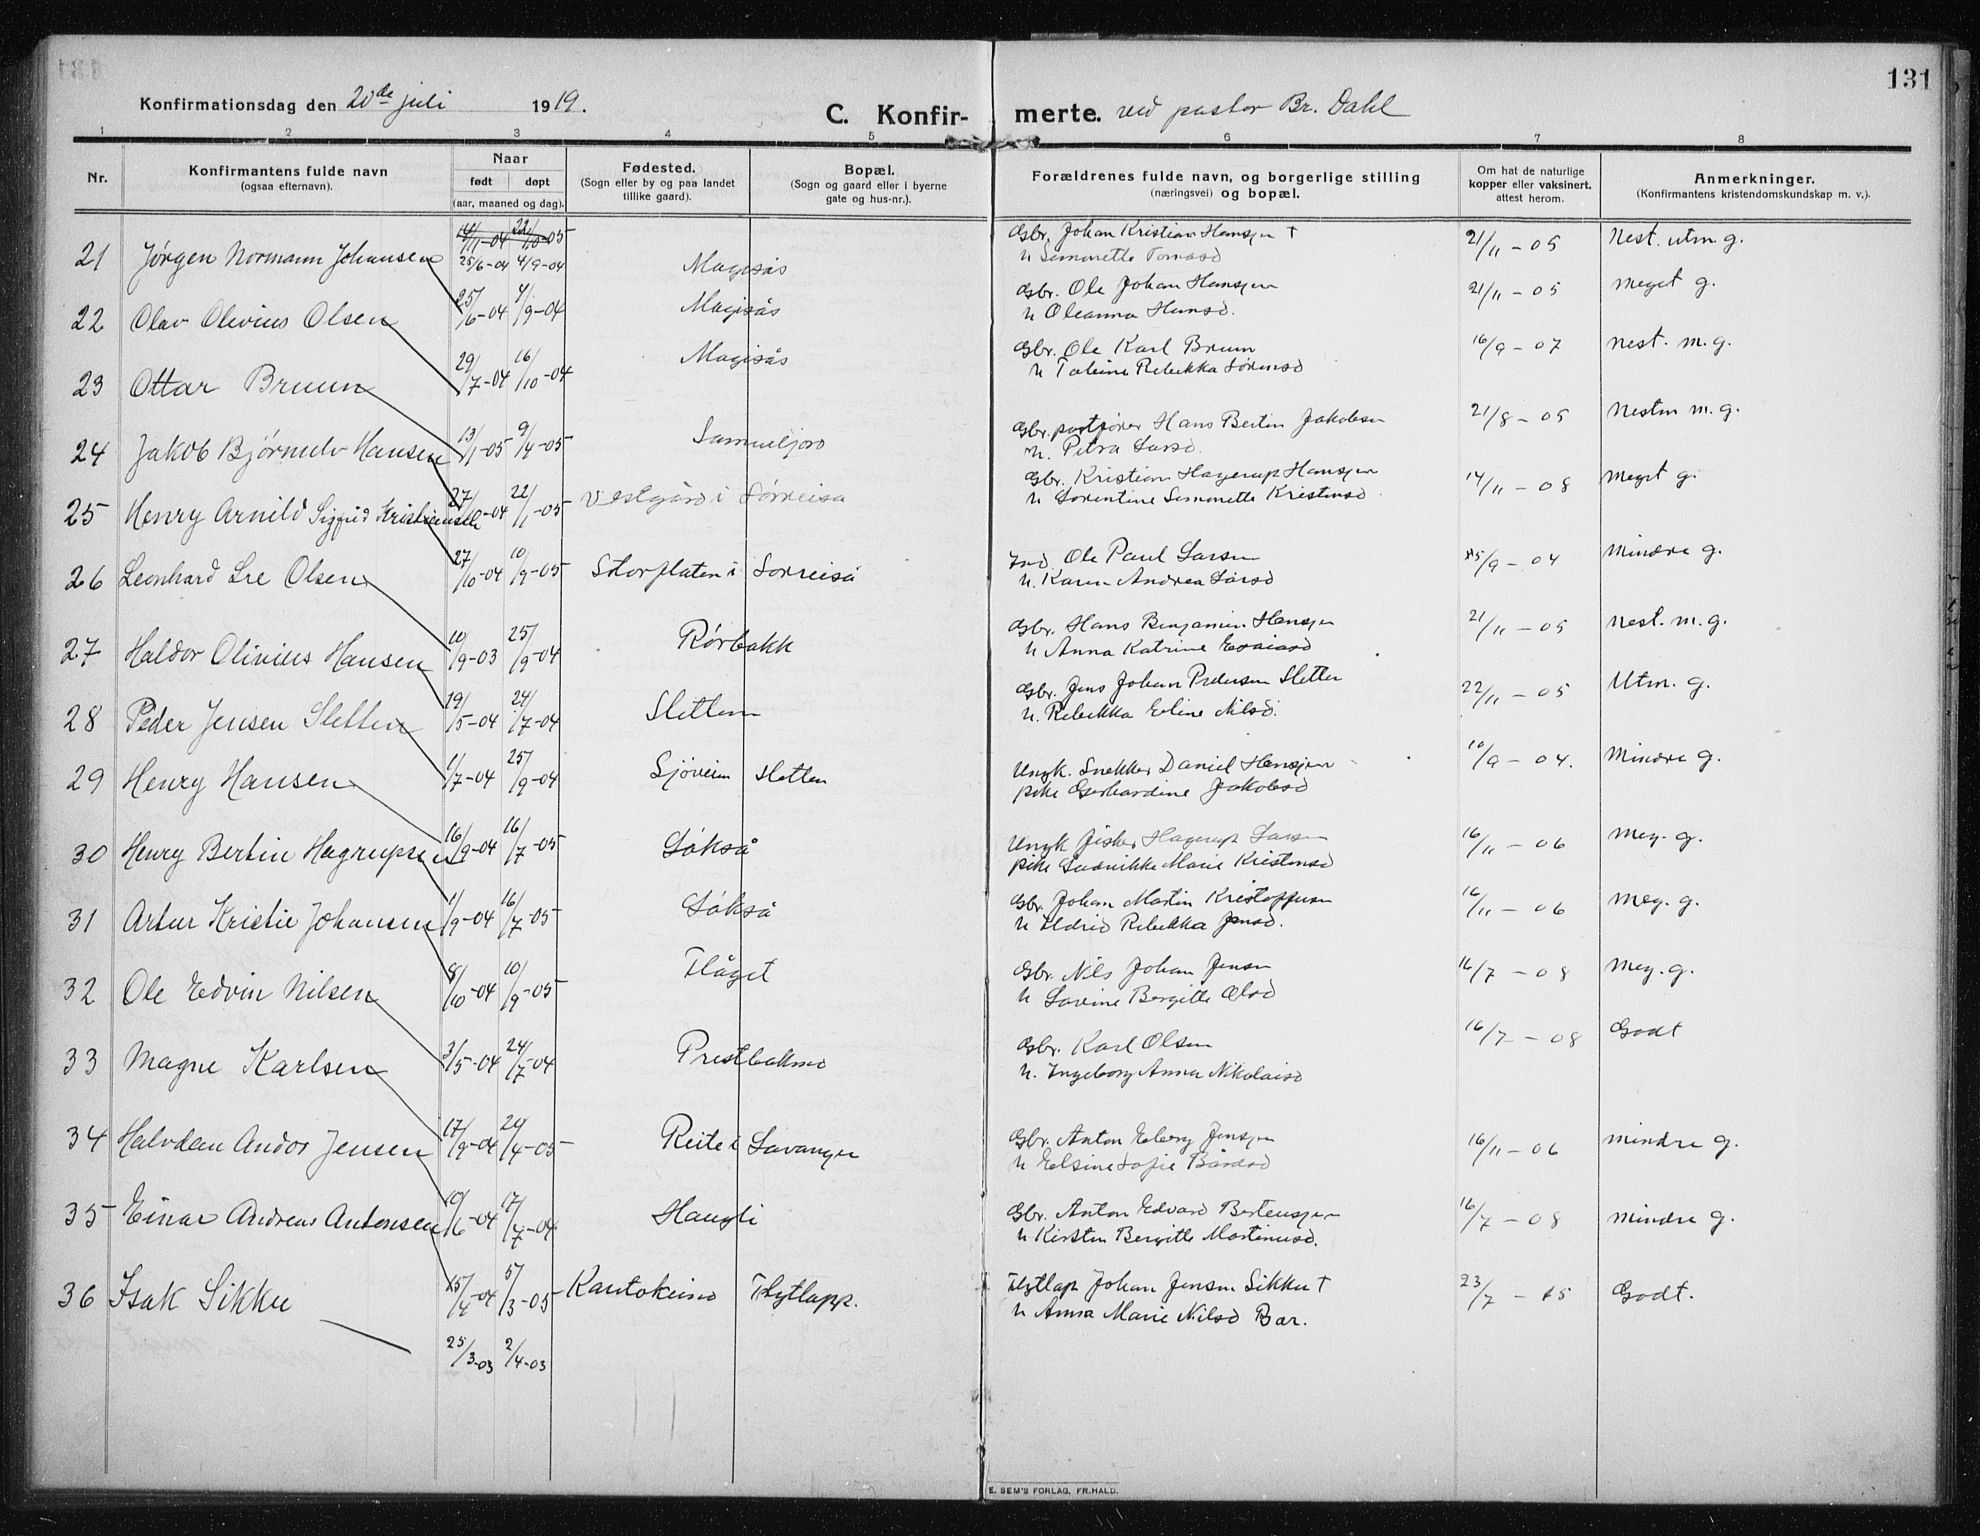 131
Konfirmationsdag den 20de juli 1919.
C. Konfirmerte. ved pastor Br. Dahl
1 2 3 4 5 6 7 8
Nr.
Konfirmantens fulde navn
(ogsaa efternavn).
Naar
født døpt
(aar, maaned og dag).
Fødested.
(Sogn eller by og paa landet
tillike gaard).
Bopæl.
(Sogn og gaard eller i byerne
gate og hus-nr.).
Forældrenes fulde navn, og borgerlige stilling
(næringsvei) og bopæl.
Om hat de naturlige
kopper eller vaksinert,
attest herom.
Anmerkninger.
(Konfirmantens kristendomskundskap m. v.).
14/11-04 22/10-05
21 Jørgen Normann Johansen 25/6-04 4/9-04 Magisås Gbr. Johan Kristian Hansen † 21/11-05 Nest. utm. g.
u Simonette Tomasd
22 Olav Olivius Olsen 25/6-04 4/9-04 Magisås Gbr. Ole Johan Hansen 21/11-05 meget g.
u Oleanna Hansd.
23 Ottar Bruun 29/7-04 16/10-04 Magisås Gbr. Ole Karl Bruun 16/9-07 nest. m. g.
u Rebekka Sørensd
24 Jakob Hansen 13/1-05 9/4-05 Gbr. Hans Bertin Jakobsen 21/8-05 Nesten m. g.
u. Petra Larsd.
25 Henry Arnild Sigfrid Kristiansen 27/10-04 22/1-05 Vestgård i Sørreisa Gbr. Kristian Hagerup Hansen 14/11-08 Meget g.
u Lorentine Simonette Kristensd.
26 Leonhard Olsen 27/10-04 10/9-05 Storsletten i Sørreisa Ind. Ole Paul Larsen 15/9-04 Mindre g.
u. Karen Andrea Larsd
27 Haldor Olivius Hansen 10/9-03 25/9-04 Rørbakk Gbr. Hans Benjamin Hansen 21/11-05 nest. m. g.
u Anna Katrine Esaiasd
28 Peder Jensen Sletten 19/5-04 24/7-04 Sletten Gbr. Jens Johan Pedersen Sletten 22/11-05 Utm. g.
u. Rebekka Eline Nilsd.
29 Henry Hansen 1/7-04 25/9-04 Sjøveien Sletten Ungk. Snekker Daniel Hansen 10/9-04. Mindre g.
pike Gerhardine Jakobsd
30 Henry Bertin Hagrupsen 16/9-04 16/7-05 Løkså Ungk fisker Hagerup Larsen 16/11-06 Meg. g.
pike Ludvikke Marie Kristensd
31 Artur Kristie Johansen 1/9-04 16/7-05 Løkså Gbr. Johan Martin Kristoffersen 16/11-06 Meg. g.
u Rebekka Jensd.
32 Ole Edvin Nilsen 8/10-04 10/9-05 Flåget Gbr. Nils Johan Jensen 16/7-08 Meg. g.
u Lovine Bergitte Olsd
33 Magne Karlsen 3/5-04 24/7-04 Prestbakmo Gbr. Karl Olsen 16/7-08 Godt
u. Ingeborg Anna Nikolaisd
34 Halvdan Andor Jensen 17/9-04 24/4-05 Reite i Lavangen Gbr. Anton Eberg Jensen 16/11-06 mindre g.
u Elsine Sofie Bårdsd
35 Einar Andreas Antonsen 19/6-04 17/7-04 Haugli Gbr. Anton Edvard Bertensen 16/7-08 mindre g.
u Kirsten Bergitte Martinusd.
36 Isak Sikku 15/4-04 5/3-05 Kautokeino Flytlapp. Flytlap Johan Jensen Sikku † 23/7-15 Godt.
u Anna Marie Nilsd Bar.
25/3-03 2/4-03
E. SEM'S FORLAG, FR.HALD.